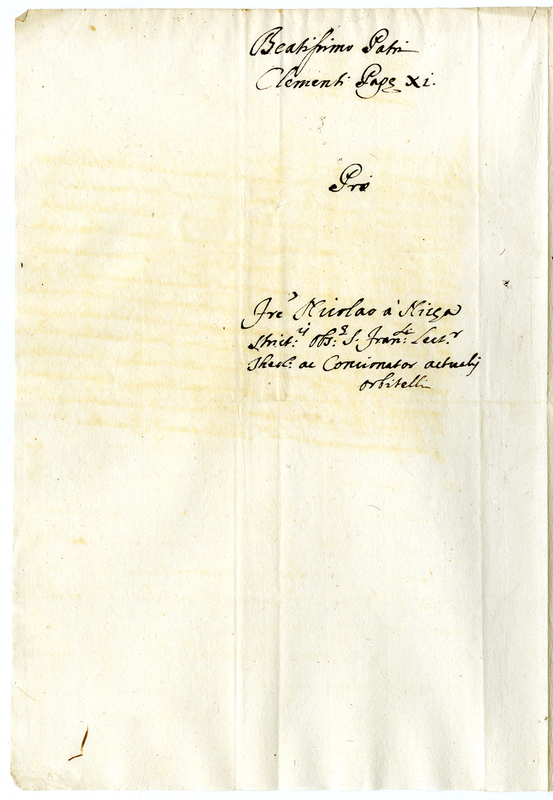 Beatissimo Patri
Clementi Papę xi.
Pro
Fre Nicolao à Nizza
strict: obs: S. Fran: Lect:r
Theol: ac Concionator actualij
orbitelli